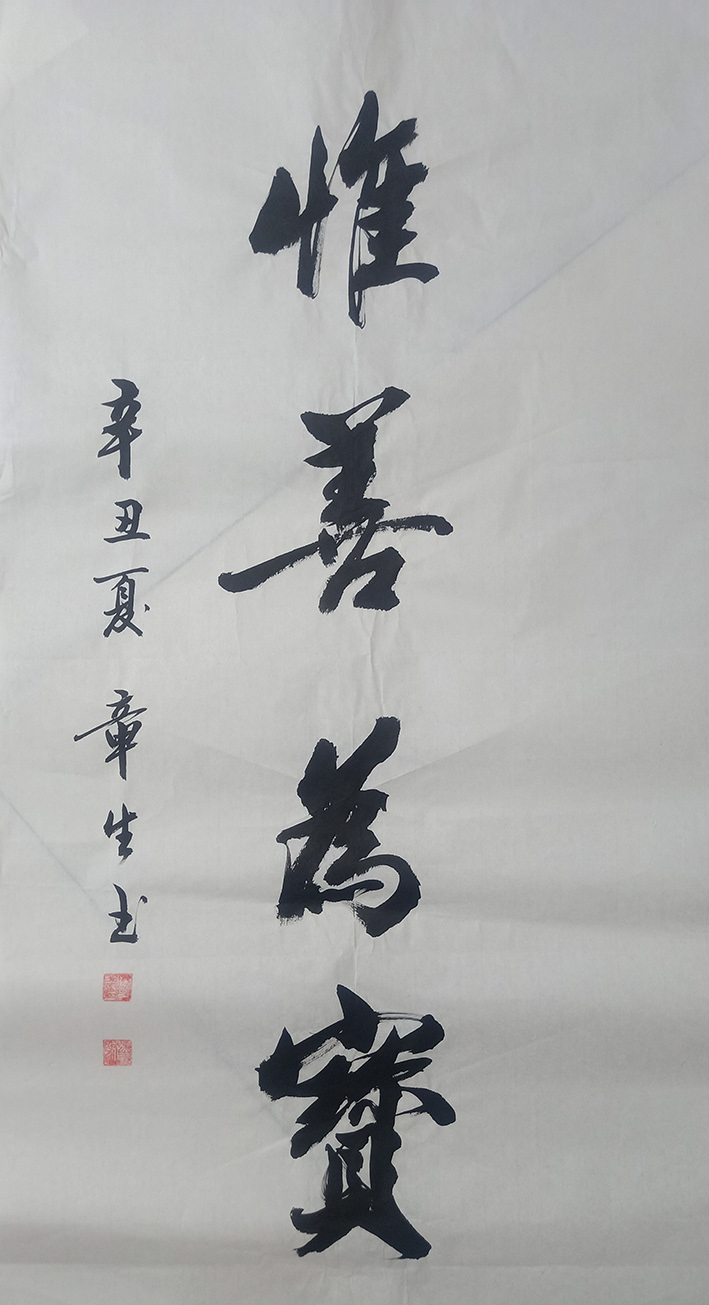 惟善為寶
辛丑夏 章生书